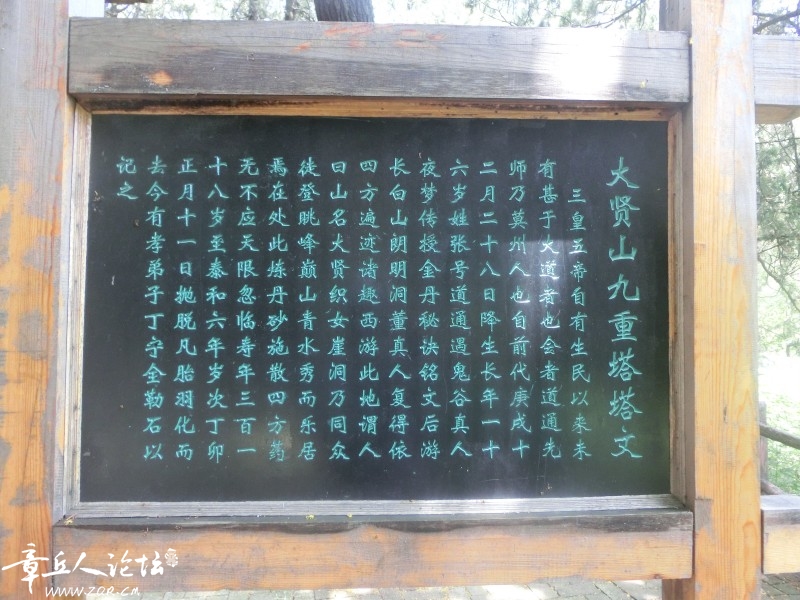 大贤山九重塔塔文
三皇五帝自有生民以来未
有甚于大道者也会者道通先
师乃莫州人也自前代庚戌十
二月二十八日降生长年一十
六岁姓张号道通遇鬼谷真人
夜梦传授金丹秘诀铭文后游
长白山朗明洞董真人复得依
四方遍迹诸趣西游此地谓人
曰山名大贤织女崖洞乃同众
徒登眺峰巅山青水秀而乐居
焉在处此炼丹砂施散四方药
无不应天限忽临寿年三百一
十八岁至泰和六年岁次丁卯
正月十一日抛脱凡胎羽化而
去今有孝弟子丁宁全勒石以
记之
章丘人论坛
www.zqr.cn